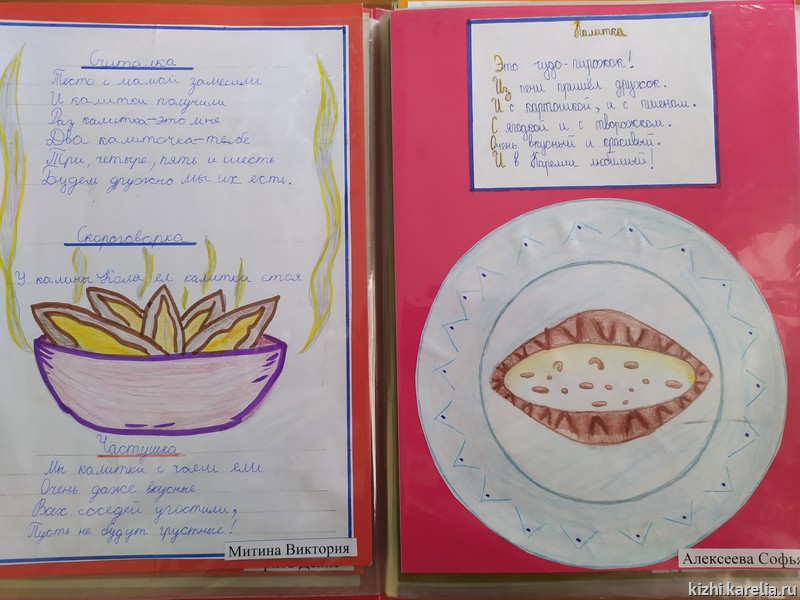 Считалка
Тесто с мамой замесили
И калитки получили
Раз калитка-это мне
Два калиточка-тебе
Три, четыре, пять и шесть
Будем дружно мы их есть.
Скороговорка
У калины Коля ел калитки стоя
Частушка
Мы калитки с чаем ели
Очень даже вкусные
Всех соседей угостили,
Пусть не будут грустные!
Митина Виктория
Калитка
Это чудо-пирожок!
Из печи пришёл дружок.
И с картошкой, и с пшеном.
С ягодкой и с творожком.
Очень вкусный и красивый.
И в Карелии любимый!
Алексеева Софья
kizhi.karelia.ru